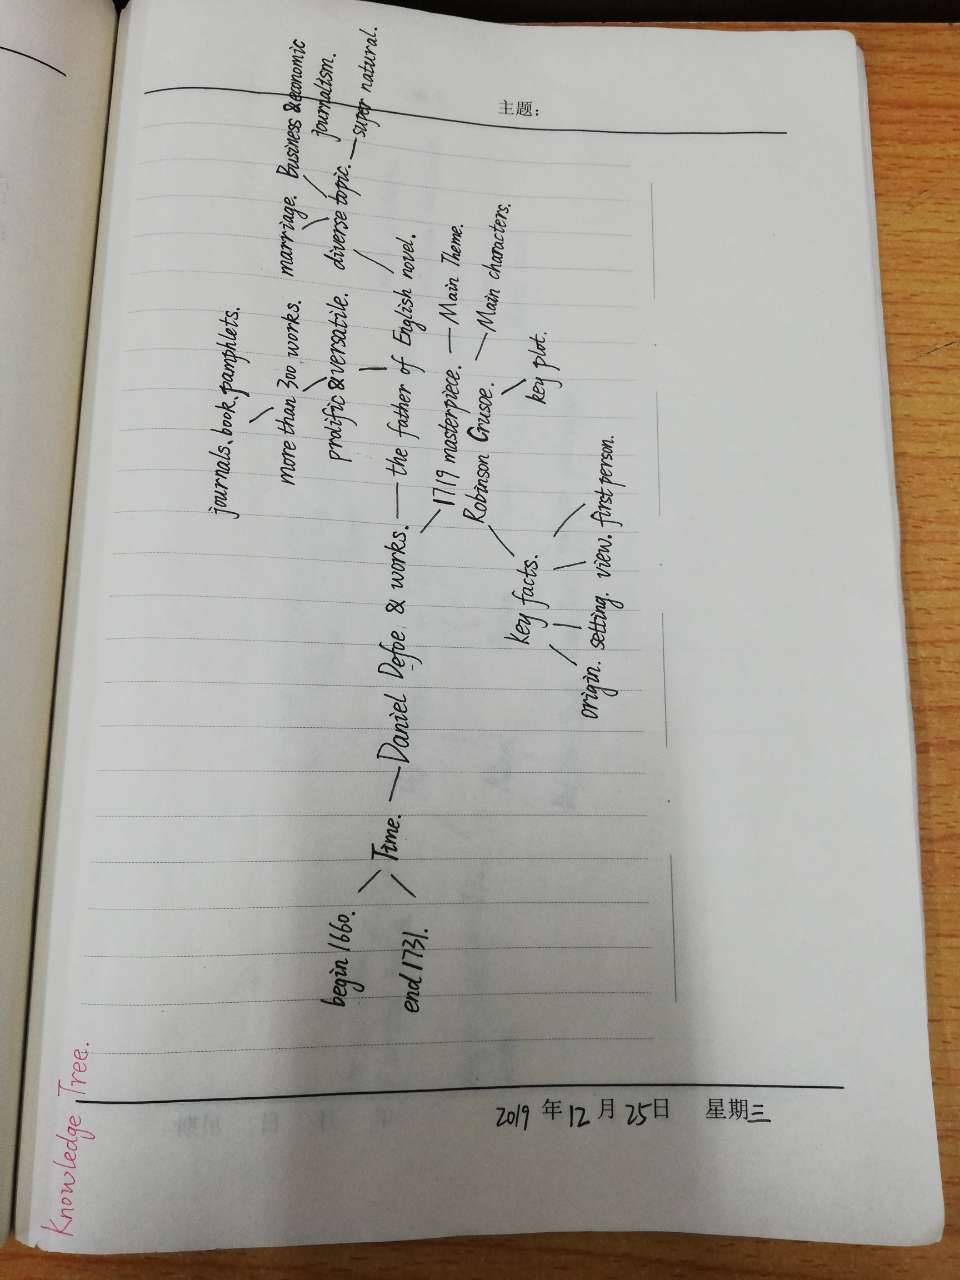 Knowledge Tree.
主题:
journals、book、pamphlets.
more than 300 works.
marriage.
Business & economic
journalism.
prolific & versatile.
diverse topic. — super natural.
begin 1660.
end 1731.
Time. — Daniel Defoe & works. — the father of English novel.
1719 masterpiece. — Main Theme.
Robinson Crusoe. — Main characters.
key plot.
key facts.
origin. setting. view. first person.
2019 年 12 月 25 日 星期三